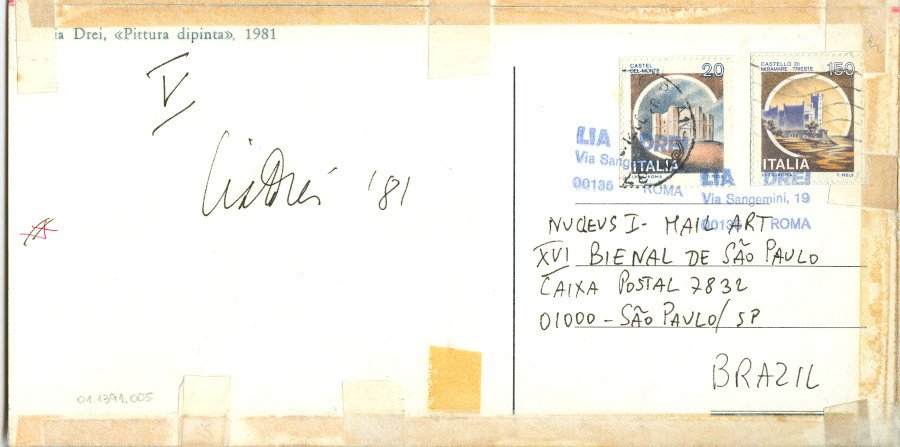 ia Drei, «Pittura dipinta», 1981
V
Lia Drei '81
CASTEL
DEL MONTE
20
ITALIA
I.P.Z.S. ROMA
CASTELLO DI
MIRAMARE - TRIESTE
150
ITALIA
I.P.Z.S. ROMA
T. MELE
LIA DREI
Via Sangemini
00135 ROMA
LIA DREI
Via Sangemini, 19
00135 ROMA
NUCLEUS I - MAIL ART
XVI BIENAL DE SÃO PAULO
CAIXA POSTAL 7832
01000 - SÃO PAULO / SP
BRAZIL
011392.005